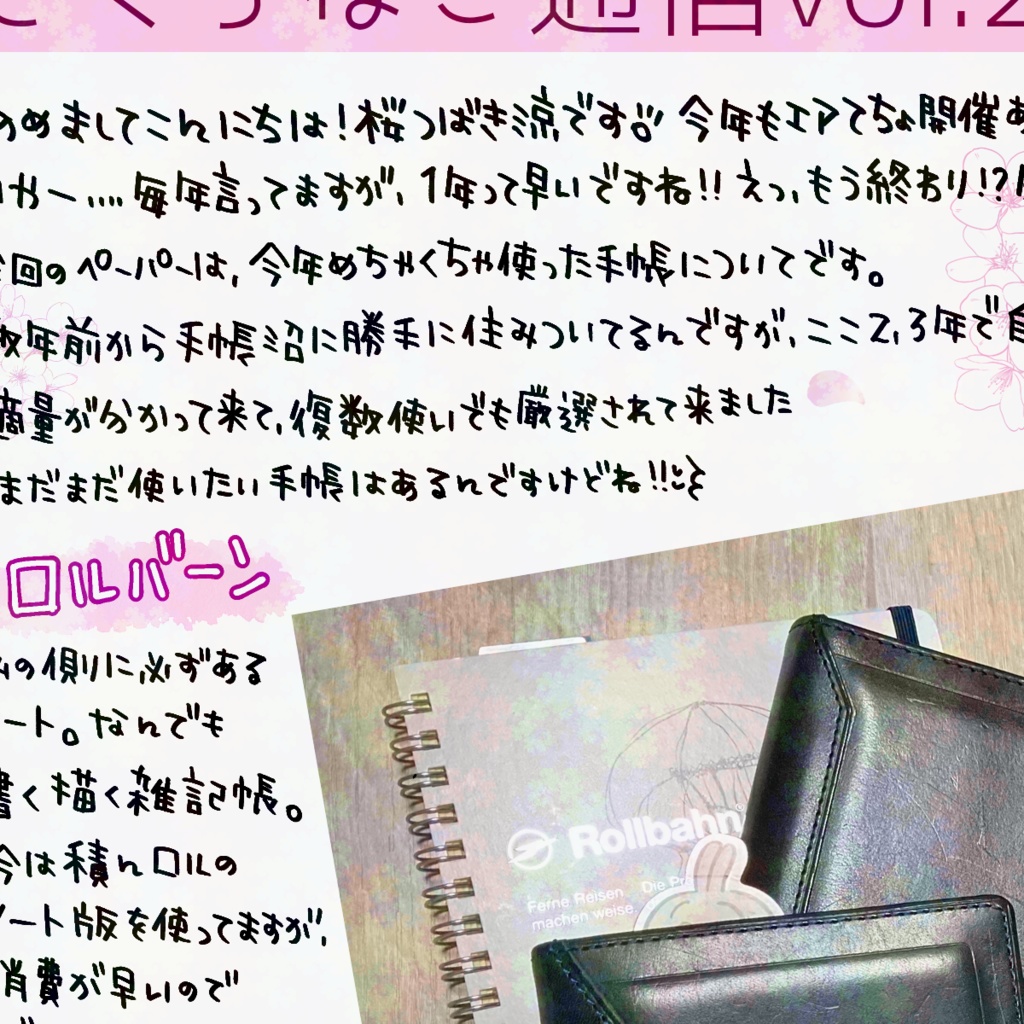 さくらねこ通信vol.2
のめましてこんにちは!桜つばき涼です 今年もエアてちょ開催あ
いやー....毎年言ってますが、1年って早いですね!!えっ、もう終わり!?
今回のペーパーは、今年めちゃくちゃ使った手帳についてです。
数年前から手帳沼に勝手に住みついてるんですが、ここ2,3年で自
適量が分かって来て、複数使いでも厳選されて来ました
まだまだ使いたい手帳はあるんですけどね!!
ロルバーン
の側りに必ずある
ノート。なんでも
書く描く雑記帳。
今は積んロルの
ノート版を使ってますが、
消費が早いので
Rollbahn
Ferne Reisen Die
machen weise.